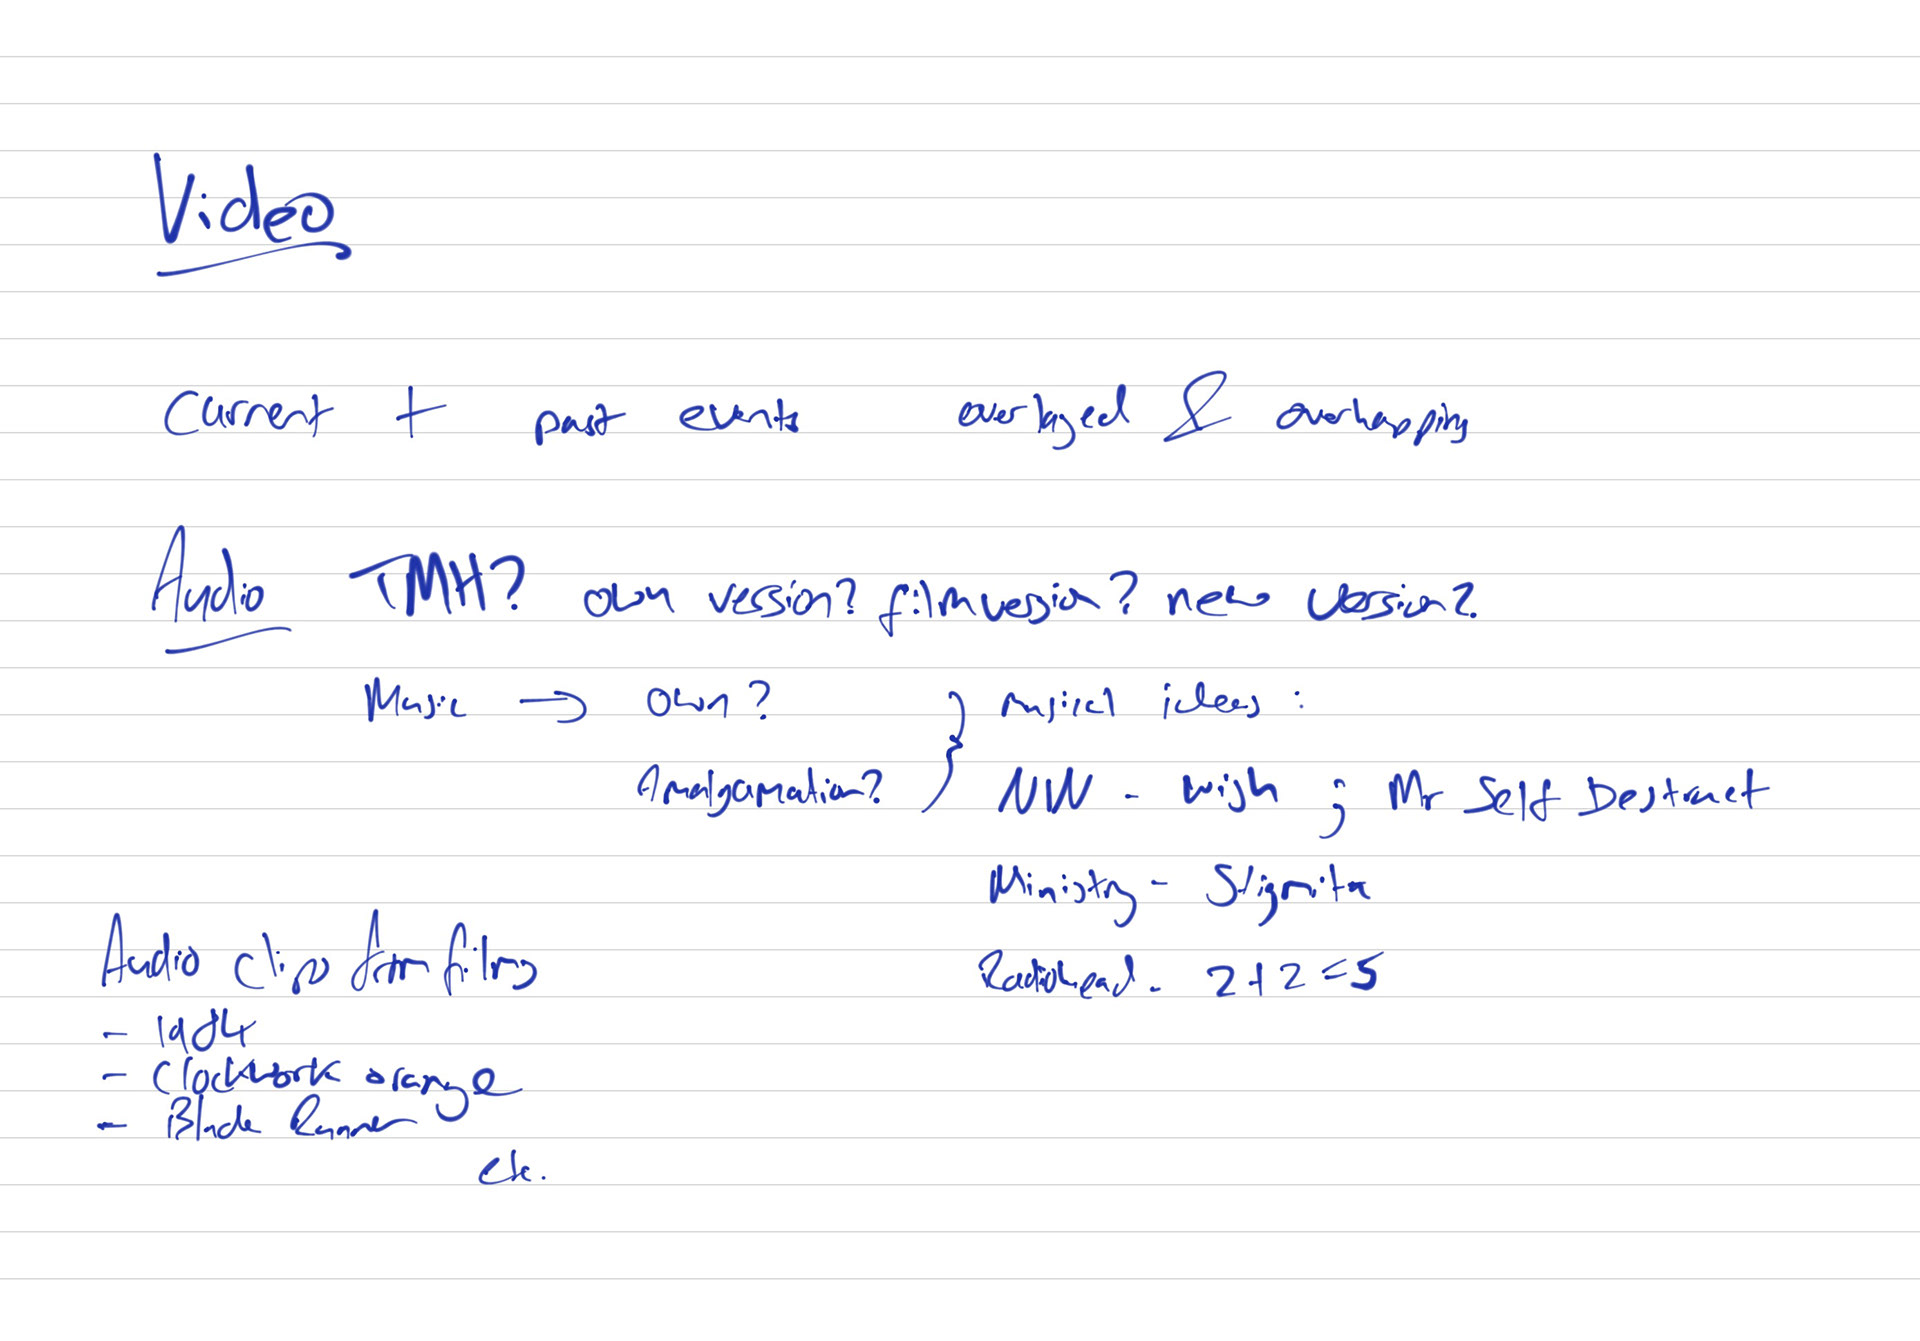 Video
Current + past events overlayed & overlapping
Audio TMH? own version? film version? new version?
Music → own? } musical ideas :
Amalgamation? NIN - Wish ; Mr Self Destruct
Ministry - Stigmata
Radiohead - 2+2=5
Audio clips from films
- 1984
- Clockwork orange
- Blade Runner
etc.